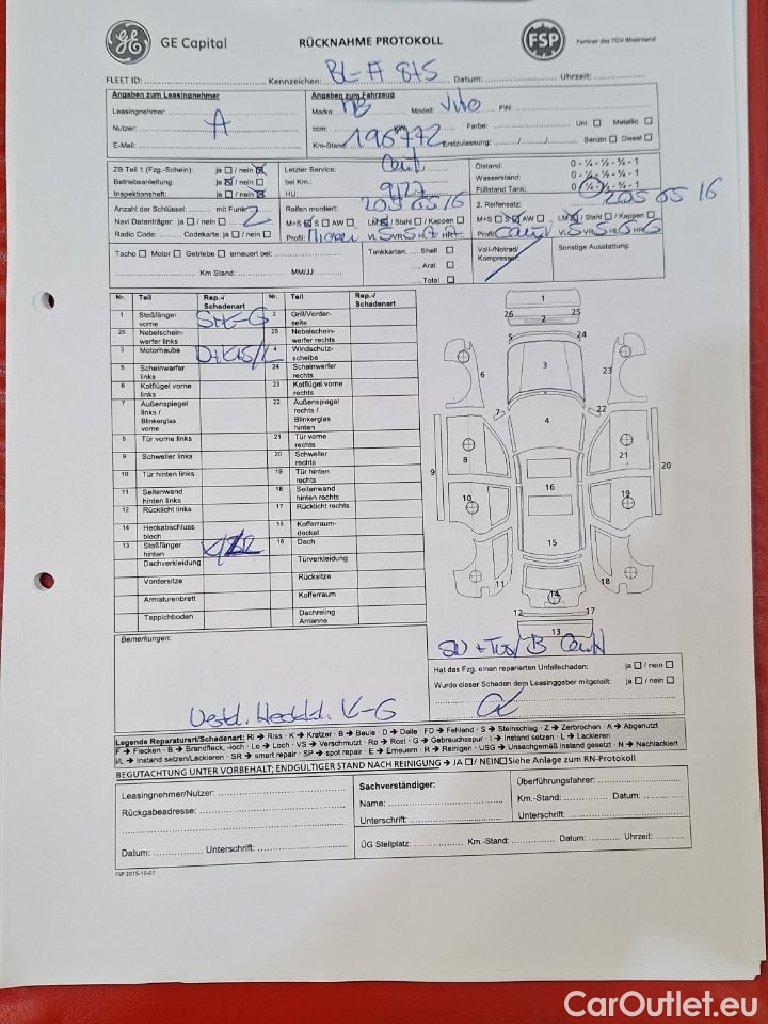 GE Capital
RÜCKNAHME PROTOKOLL
FSP Partner des TÜV Rheinland
FLEET ID: Kennzeichen: BL-A 875 Datum: Uhrzeit:
Angaben zum Leasingnehmer
Angaben zum Fahrzeug
Leasingnehmer:
Marke: MB Modell: Vito FIN:
Nutzer: A
ccm: KW: Farbe: Uni Metallic
E-Mail:
Km-Stand: 196772 Erstzulassung: Benzin Diesel
ZB Teil 1 (Fzg.-Schein): ja / nein
Betriebsanleitung: ja / nein
Inspektionsheft: ja / nein
Letzter Service:
bei Km.:
HU:
Ölstand: 0 - ¼ - ½ - ¾ - 1
Wasserstand: 0 - ¼ - ½ - ¾ - 1
Füllstand Tank: 0 - ¼ - ½ - ¾ - 1
Anzahl der Schlüssel: mit Funk: 2
Navi Datenträger: ja / nein
Radio Code: Codekarte: ja / nein
Reifen montiert: 205 65 16
M+S S AW LM / Stahl / Kappen
Profil: VL VR HL HR
2. Reifensatz: 205 65 16
M+S S AW LM / Stahl / Kappen
Profil: VL 5 VR 5 HL 6 HR 6
Tacho Motor Getriebe erneuert bei:
Km Stand: MM/JJ:
Tankkarten: Shell
Aral
Total
Voll-/Notrad/
Kompressor:
Sonstige Ausstattung:
Nr. Teil Rep.-/ Schadenart Nr. Teil Rep.-/ Schadenart
1 Stoßfänger vorne 2 Grill/Vorder-seite
26 Nebelschein-werfer links 25 Nebelschein-werfer rechts
3 Motorhaube 4 Windschutz-scheibe
5 Scheinwerfer links 24 Scheinwerfer rechts
6 Kotflügel vorne links 23 Kotflügel vorne rechts
7 Außenspiegel links / Blinkerglas vorne 22 Außenspiegel rechts / Blinkerglas hinten
8 Tür vorne links 21 Tür vorne rechts
9 Schweller links 20 Schweller rechts
10 Tür hinten links 19 Tür hinten rechts
11 Seitenwand hinten links 18 Seitenwand hinten rechts
12 Rücklicht links 17 Rücklicht rechts
14 Heckabschluss blech 15 Kofferraum-deckel
13 Stoßfänger hinten 16 Dach
Dachverkleidung Türverkleidung
Vordersitze Rücksitze
Armaturenbrett Kofferraum
Teppichboden Dachreling Antenne
1
26 25
2
5 24
6 3 23
7 22
4
8 21
9 20
10 16 19
15
11 14 18
12 17
13
Bemerkungen:
Hat das Fzg. einen reparierten Unfallschaden: ja / nein
Wurde dieser Schaden dem Leasinggeber mitgeteilt: ja / nein
Legende Reparaturart/Schadenart: RI → Riss · K → Kratzer · B → Beule · D → Delle · FD → Fehlend · S → Steinschlag · Z → Zerbrochen · A → Abgenutzt
F → Flecken · B → Brandfleck, -loch · Lo → Loch · VS → Verschmutzt · Ro → Rost · G → Gebrauchsspur · I → Instand setzen · L → Lackieren
I/L → Instand setzen/Lackieren · SR → smart repair · SP → spot repair · E → Erneuern · R → Reinigen · USG → Unsachgemäß instand gesetzt · N → Nachlackiert
BEGUTACHTUNG UNTER VORBEHALT; ENDGÜLTIGER STAND NACH REINIGUNG → JA / NEIN Siehe Anlage zum RN-Protokoll
Leasingnehmer/Nutzer:
Rückgabeadresse:
Datum: Unterschrift:
Sachverständiger:
Name:
Unterschrift:
Überführungsfahrer:
Km.-Stand: Datum:
Unterschrift:
ÜG Stellplatz: Km.-Stand: Datum: Uhrzeit:
FSP 2015-10-07
CarOutlet.eu